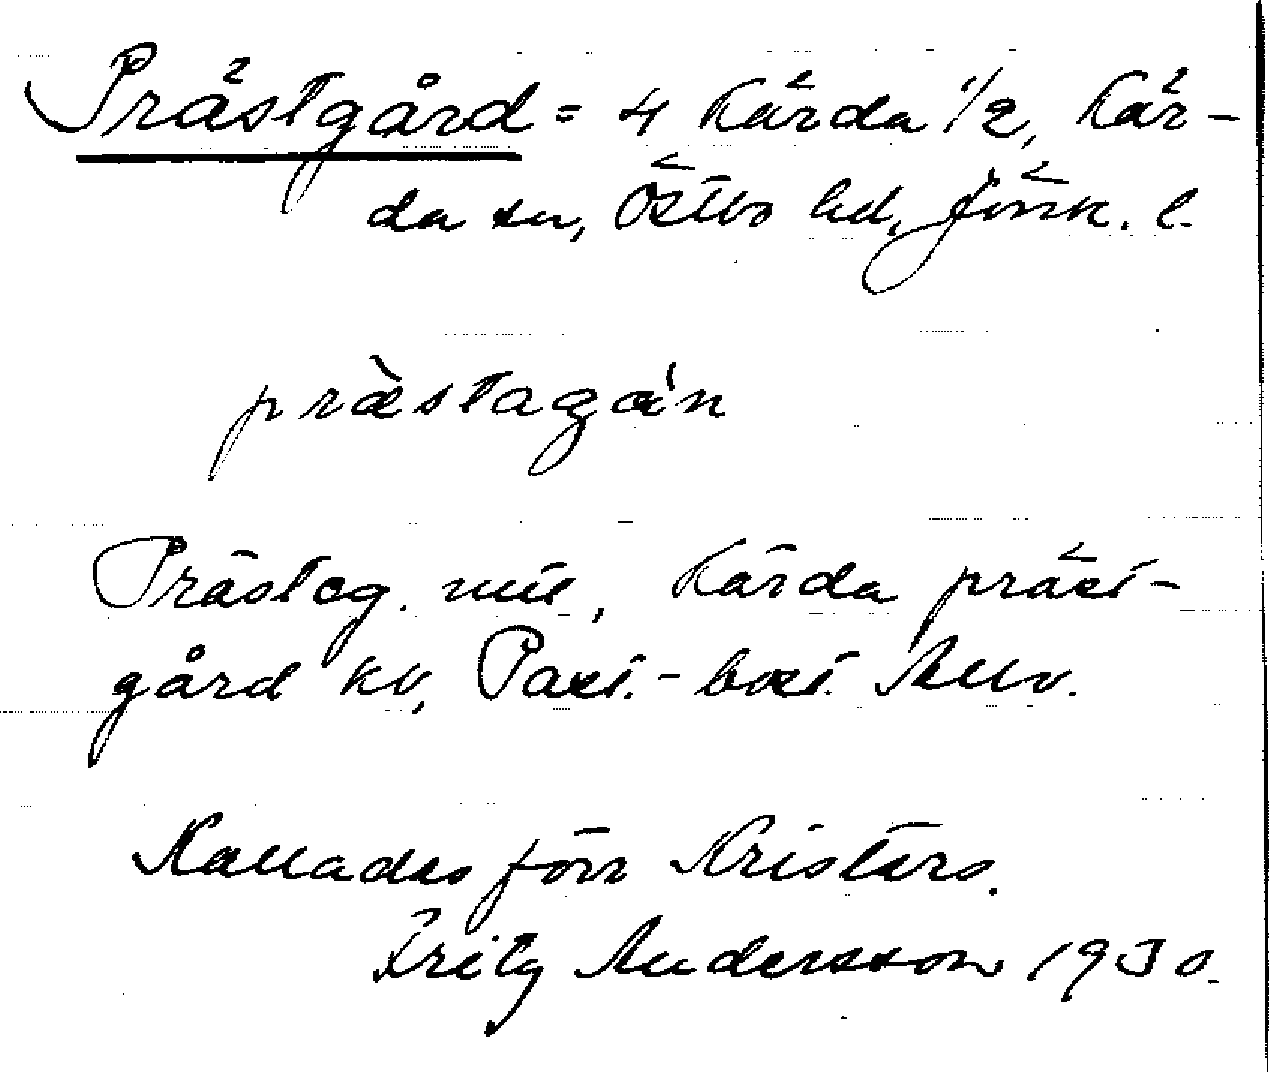 Prästgård = 4 Kärda 1/2, Kär-
da sn, Östbo hd, Jönk. l.
præ̀stagá̇n
Prästeg. mtl, Kärda präst-
gård kv, Past.-bost. Allv.
Kallades förr Kristers.
Fritz Andersson 1930.